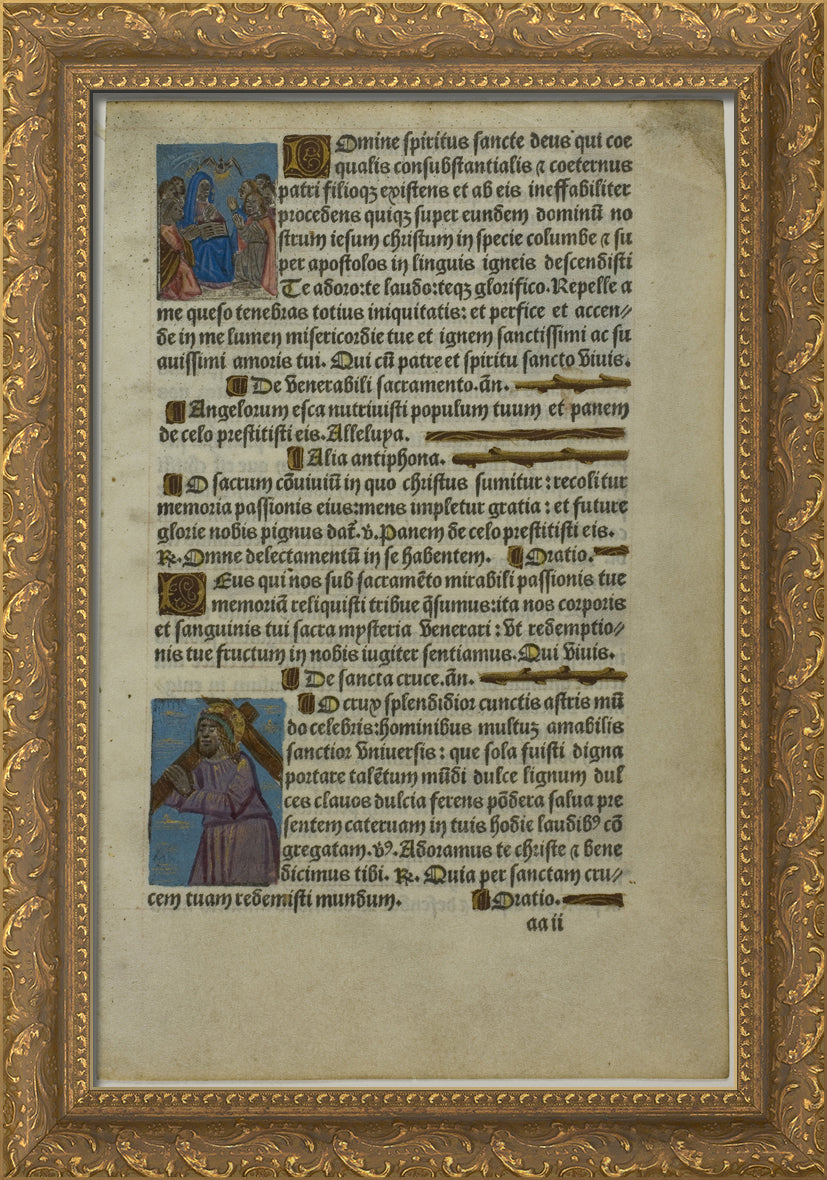 Domine spiritus sancte deus qui coe
qualis consubstantialis ⁊ coeternus
patri filioqꝫ existens et ab eis ineffabiliter
procedens quiqꝫ super eundem dominū no
strum iesum christum in specie columbe ⁊ su
per apostolos in linguis igneis descendisti
Te adoro: te laudo: teqꝫ glorifico. Repelle a
me queso tenebras totius iniquitatis: et perfice et accen//
de in me lumen misericordie tue et ignem sanctissimi ac su
auissimi amoris tui. Qui cū patre et spiritu sancto viuis.
De venerabili sacramento. añ.
Angelorum esca nutriuisti populum tuum et panem
de celo prestitisti eis. Alleluya.
Alia antiphona.
O sacrum cōuiuiū in quo christus sumitur: recolitur
memoria passionis eius: mens impletur gratia: et future
glorie nobis pignus dat̄. v̄. Panem de celo prestitisti eis.
℞. Omne delectamentū in se habentem. Oratio.
DEus qui nos sub sacramēto mirabili passionis tue
memoriā reliquisti tribue q̄sumus: ita nos corporis
et sanguinis tui sacra mysteria venerari: vt redemptio//
nis tue fructum in nobis iugiter sentiamus. Qui viuis.
De sancta cruce. añ.
O crux splendidior cunctis astris mū
do celebris: hominibus multuꝫ amabilis
sanctior vniuersis: que sola fuisti digna
portare talētum mūdi dulce lignum dul
ces clauos dulcia ferens pōdera salua pre
sentem cateruam in tuis hodie laudibꝰ cō
gregatam. vꝰ. Adoramus te christe ⁊ bene
dicimus tibi. ℞. Quia per sanctam cru//
cem tuam redemisti mundum. Oratio.
aa ii